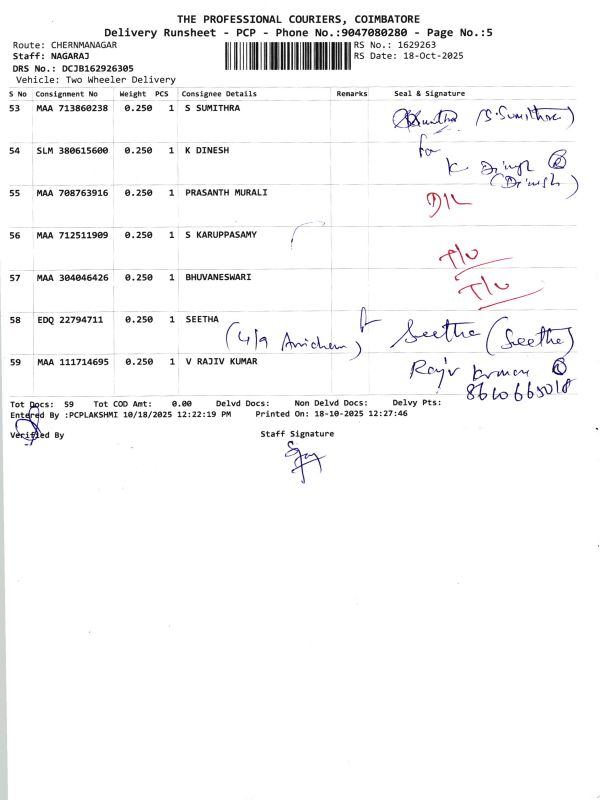 THE PROFESSIONAL COURIERS, COIMBATORE
Delivery Runsheet - PCP - Phone No.:9047080280 - Page No.:5
Route: CHERNMANAGAR RS No.: 1629263
Staff: NAGARAJ RS Date: 18-Oct-2025
DRS No.: DCJB162926305
Vehicle: Two Wheeler Delivery
S No Consignment No Weight PCS Consignee Details Remarks Seal & Signature
53 MAA 713860238 0.250 1 S SUMITHRA (S.Sumithra)
54 SLM 380615600 0.250 1 K DINESH for
K Dinesh
(Dinesh)
55 MAA 708763916 0.250 1 PRASANTH MURALI D/L
56 MAA 712511909 0.250 1 S KARUPPASAMY T/U
57 MAA 304046426 0.250 1 BHUVANESWARI T/U
58 EDQ 22794711 0.250 1 SEETHA Seetha (Seetha)
(4/9
59 MAA 111714695 0.250 1 V RAJIV KUMAR Rajiv Kumar
8610665018
Tot Docs: 59 Tot COD Amt: 0.00 Delvd Docs: Non Delvd Docs: Delvy Pts:
Entered By :PCPLAKSHMI 10/18/2025 12:22:19 PM Printed On: 18-10-2025 12:27:46
Verified By Staff Signature